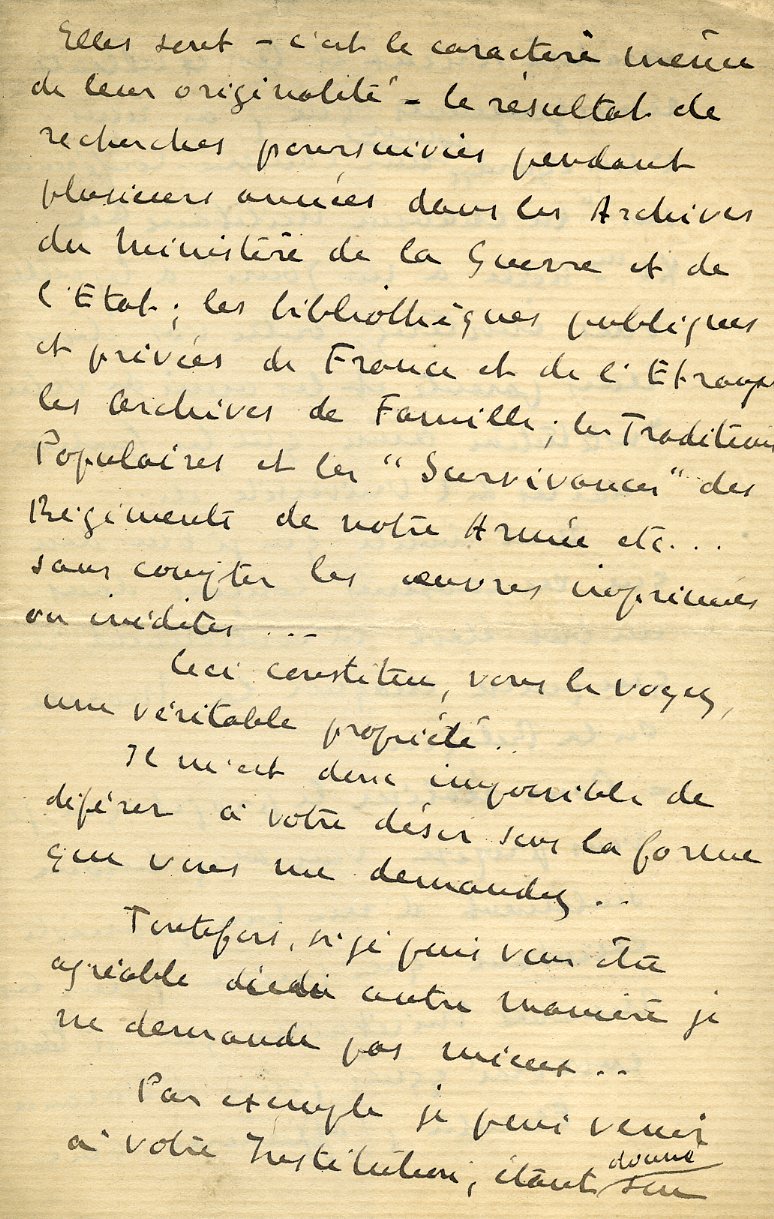 Elles sont – c'est le caractère même
de leur originalité – le résultat de
recherches poursuivies pendant
plusieurs années dans les Archives
du Ministère de la Guerre et de
l'Etat ; les bibliothèques publiques
et privées de France et de l'Etranger
les Archives de Famille ; les Traditions
Populaires et les "Survivances" des
Régiments de notre Armée etc...
sans compter les œuvres imprimées
ou inédites ...
Ceci constitue, vous le voyez,
une véritable propriété..
Il m'est donc impossible de
déférer à votre désir sous la forme
que vous me demandez ...
Toutefois, si je puis vous être
agréable autre manière je
ne demande pas mieux ...
Par exemple je puis venir
à votre Institution, étant donné